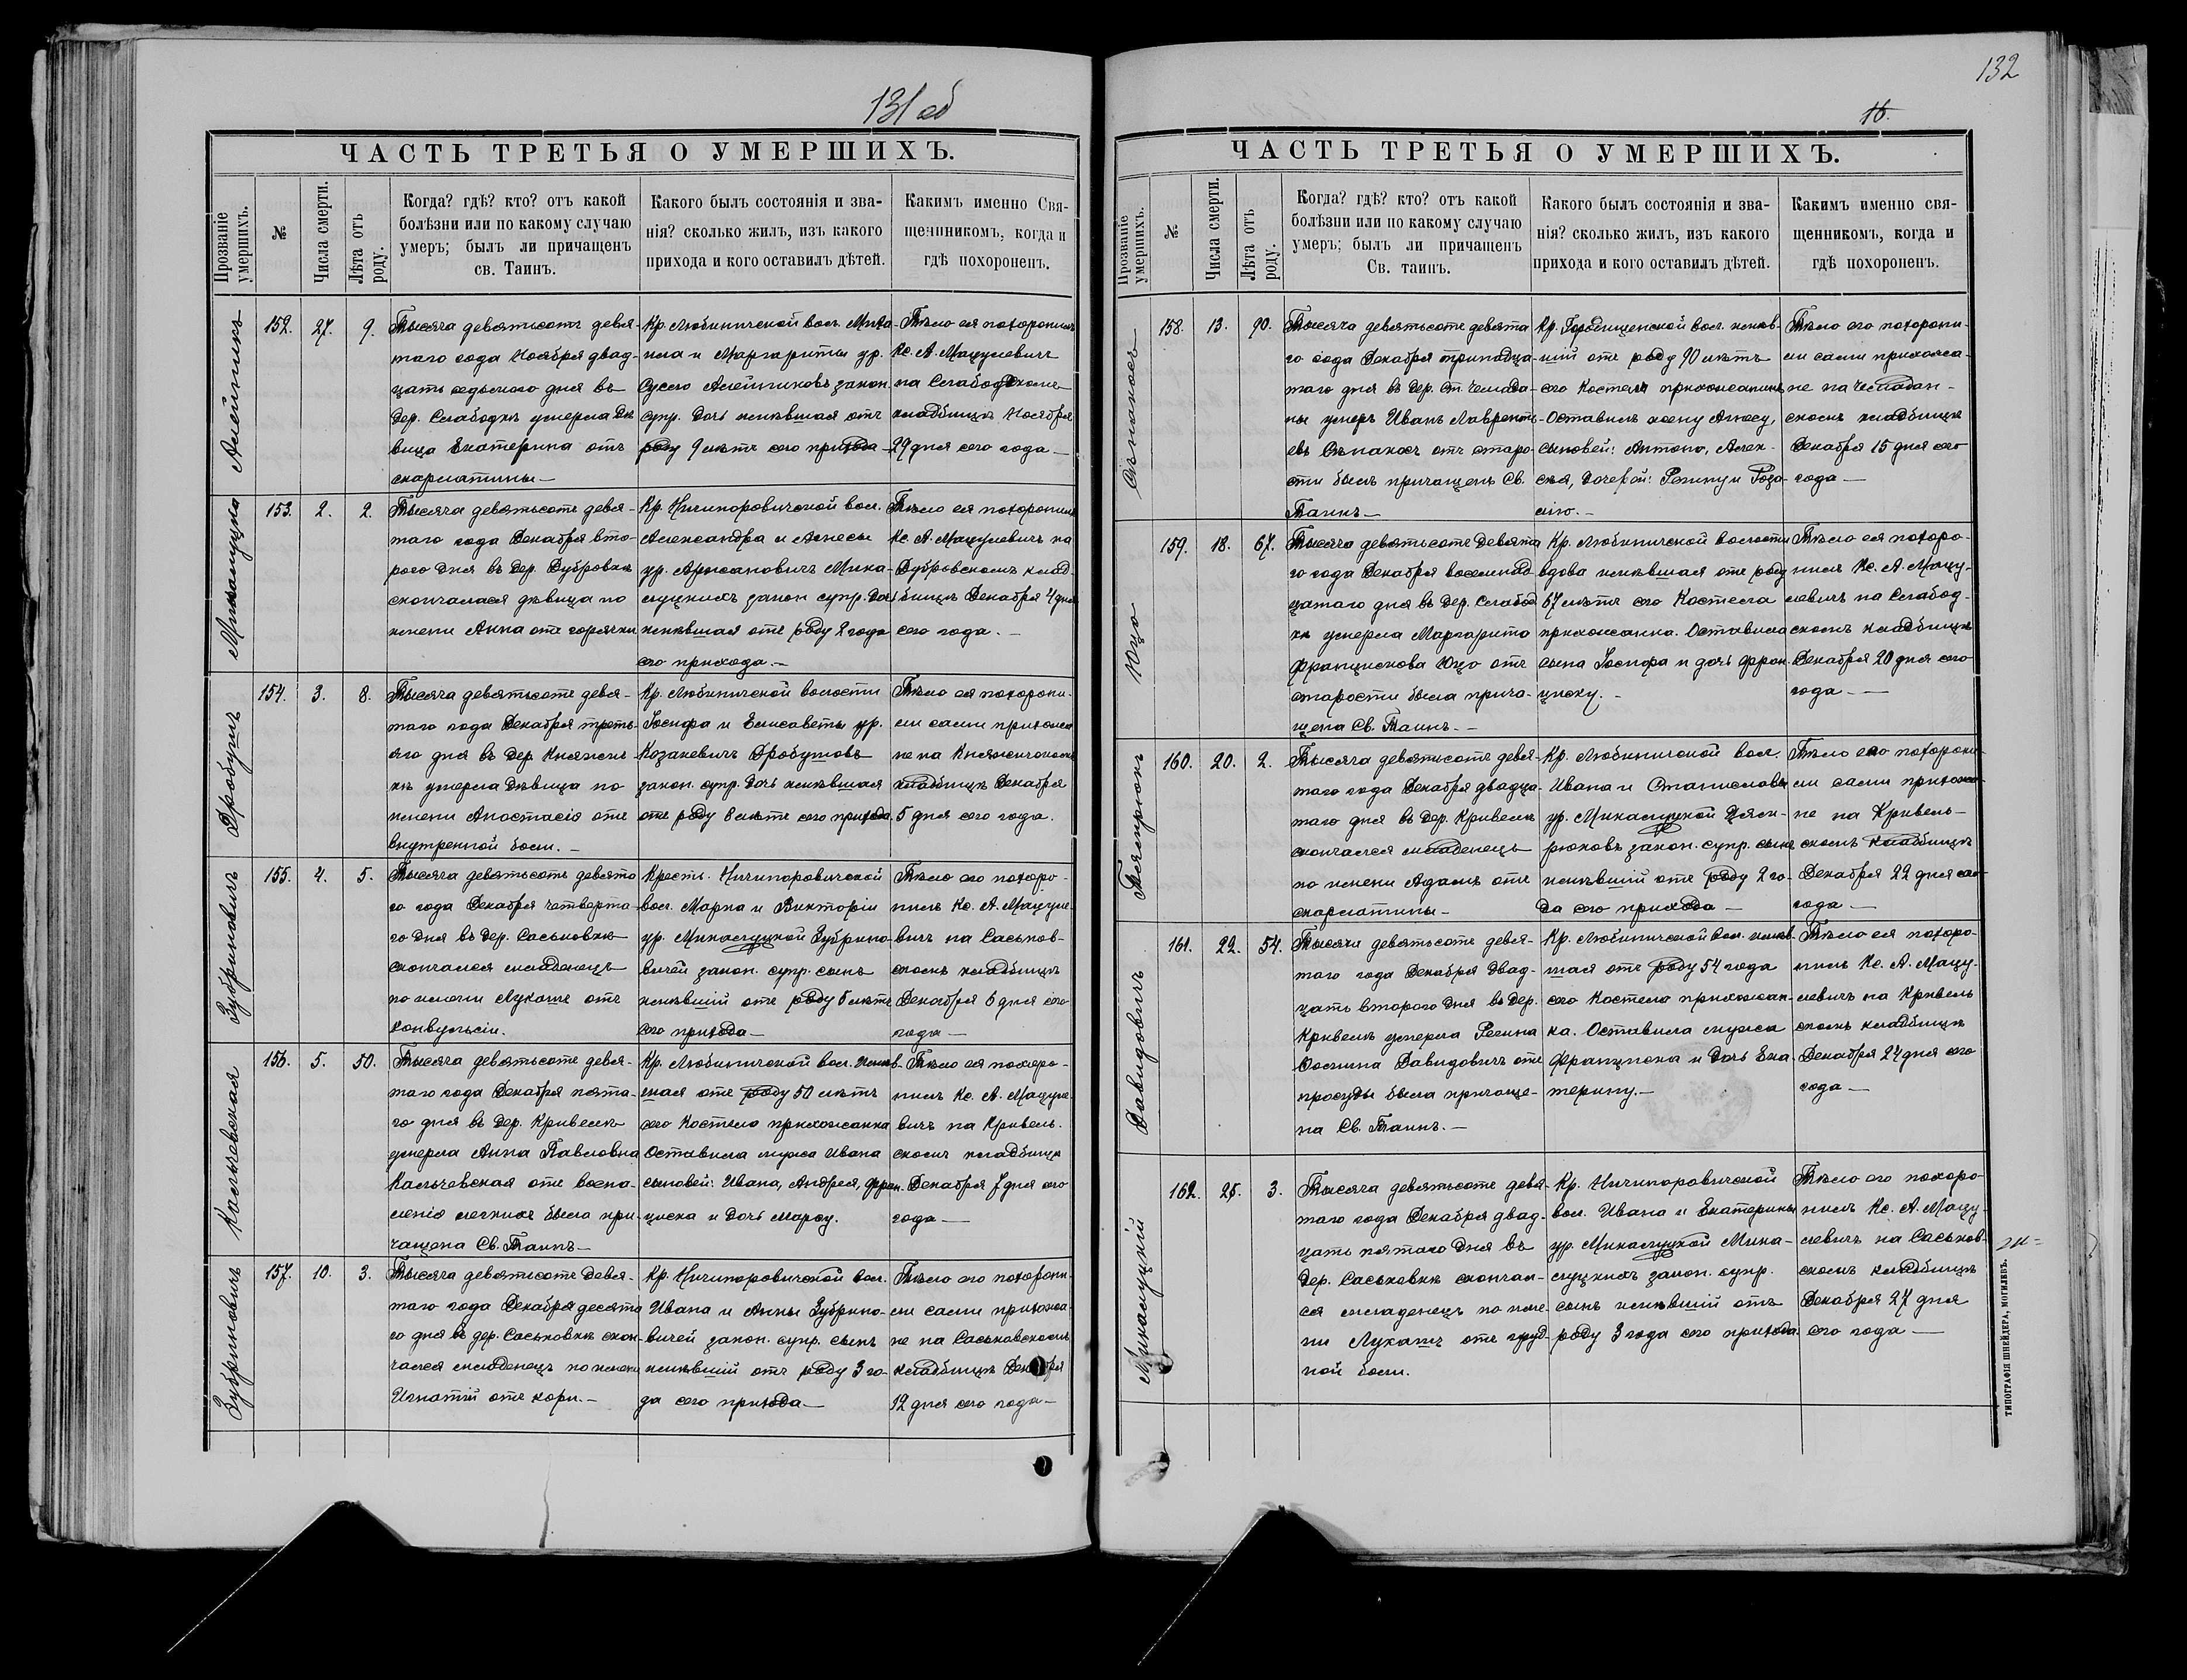 131 об
ЧАСТЬ ТРЕТЬЯ О УМЕРШИХЪ.
Прозваніе умершихъ.
№
Числа смерти.
Лѣта отъ роду.
Когда? гдѣ? кто? отъ какой
болѣзни или по какому случаю
умеръ; былъ ли причащенъ
св. Таинъ.
Какого былъ состоянія и зва-
нія? сколько жилъ, изъ какого
прихода и кого оставилъ дѣтей.
Какимъ именно Свя-
щенникомъ, когда и
гдѣ похороненъ.
Алейникъ
152. 27. 9.
Тысяча девятьсотъ девя-
таго года Ноября двад-
цать седьмого дня въ
дер. Слабодкѣ умерла дѣ
вица Екатерина отъ
скарлатины —
Кр. Любиничской вол. Миха-
ила и Маргариты ур.
Алейниковъ закон.
супр. дочь жившая отъ
роду 9 лѣтъ сего прихода —
Тѣло ея похоронилъ
Кс. А. Мацулевичъ
на Слабодском
кладбищѣ Ноября
29 дня сего года —
Микалуцка
153. 2. 2.
Тысяча девятьсотъ девя-
таго года Декабря вто-
рого дня въ дер. Дубровкѣ
скончалася дѣвица по
имени Анна отъ горячки
Кр. Ничипоровичской вол.
Александра и Агнесы
ур. Аржановичъ Мика-
луцкихъ закон. супр. дочь
жившая отъ роду 2 года
сего прихода. —
Тѣло ея похоронилъ
Кс. А. Мацулевичъ на
Дубровскомъ клад-
бищѣ Декабря 4 дня
сего года. —
Дробушъ
154. 3. 8.
Тысяча девятьсотъ девя-
таго года Декабря треть-
яго дня въ дер. Княжич
кѣ умерла дѣвица по
имени Анастасія отъ
внутренной боли. —
Кр. Любиничской волости
Іосифа и Елисаветы ур.
Козакевичъ Дробушовъ
закон. супр. дочь жившая
отъ роду 8 лѣтъ сего прихода.
Тѣло ея похорони-
ли сами прихожа
не на
кладбищѣ Декабря
5 дня сего года.
Зубриновичъ
155. 4. 5.
Тысяча девятьсотъ девято
го года Декабря четверта-
го дня въ дер. Саськовкѣ
скончался младенецъ
по имени Лукашъ отъ
конвульсіи.
Крест. Ничипоровичской
вол. Марка и Викторіи
ур. Микалуцкой Зубрино-
вичей закон. супр. сынъ
жившій отъ роду 5 лѣтъ
сего прихода —
Тѣло его похоро-
нилъ Кс. А. Мацуле-
вичъ на Саськов-
скомъ кладбищѣ
Декабря 6 дня сего
года —
Кальчевская
156. 5. 50.
Тысяча девятьсотъ девя-
таго года Декабря пята-
го дня въ дер. Кривелѣ
умерла Анна Павловна
Кальчевская отъ воспа-
ленія легкихъ была при-
чащена Св. Таинъ —
Кр. Любиничской вол. жив-
шая отъ роду 50 лѣтъ
сего Костела прихожанка
Оставила мужа Ивана
сыновей: Ивана, Андрея, Фран-
циска и дочь Марсу.
Тѣло ея похоро-
нилъ Кс. А. Мацуле-
вичъ на Кривель-
скомъ кладбищѣ
Декабря 7 дня сего
года —
Зубриновичъ
157. 10. 3.
Тысяча девятьсотъ девя-
таго года Декабря десята
го дня въ дер. Саськовкѣ скон-
чался младенецъ по имени
Игнатій отъ кори. —
Кр. Ничипоровичской вол.
Ивана и Анны Зубрино-
вичей закон. супр. сынъ
жившій отъ роду 3 го-
да сего прихода —
Тѣло его похорони-
ли сами прихожа-
не на Саськовскомъ
кладбищѣ Декабря
12 дня сего года —
132
16.
ЧАСТЬ ТРЕТЬЯ О УМЕРШИХЪ.
Прозваніе умершихъ.
№
Числа смерти.
Лѣта отъ роду.
Когда? гдѣ? кто? отъ какой
болѣзни или по какому случаю
умеръ; былъ ли причащенъ
Св. таинъ.
Какого былъ состоянія и зва-
нія? сколько жилъ, изъ какого
прихода и кого оставилъ дѣтей.
Какимъ именно свя-
щенникомъ, когда и
гдѣ похороненъ.
158. 13. 90.
Тысяча девятьсотъ девята
го года Декабря тринадца-
таго дня въ дер. Ст. Чемода-
ны умеръ Иванъ Лавренть-
евъ отъ старо-
сти былъ причащенъ Св.
Таинъ —
Кр. Городищенской вол. жив-
шій отъ роду 90 лѣтъ
сего Костела прихожанинъ
Оставилъ жену Агнесу,
сыновей: Антона, Алек-
сѣя, дочерей: Регину и Роза-
лію. —
Тѣло его похорони-
ли сами прихожа-
не на Чемодан-
скомъ кладбищѣ
Декабря 15 дня сего
года —
Юцо
159. 18. 67.
Тысяча девятьсотъ девята
го года Декабря восемнад-
цатаго дня въ дер. Слабод
кѣ умерла Маргарита
Францискова Юцо отъ
старости была прича-
щена Св. Таинъ. —
Кр. Любиничской волости
вдова жившая отъ роду
67 лѣтъ сего Костела
прихожанка. Оставила
сына Іосифа и дочь Фран-
циску. —
Тѣло ея похоро-
нилъ Кс. А. Мацу-
левичъ на Слабод-
скомъ кладбищѣ
Декабря 20 дня сего
года —
160. 20. 2.
Тысяча девятьсотъ девя-
таго года Декабря двадца-
таго дня въ дер. Кривелѣ
скончался младенецъ
по имени Адамъ отъ
скарлатины —
Кр. Любиничской вол.
Ивана и Станиславы
ур. Микалуцкой
рюковъ закон. супр. сынъ
жившій отъ роду 2 го-
да сего прихода —
Тѣло его похорони-
ли сами прихожа-
не на Кривель-
скомъ кладбищѣ
Декабря 22 дня сего
года —
Давидовичъ
161. 22. 54.
Тысяча девятьсотъ девя-
таго года Декабря двад-
цать второго дня въ дер.
Кривелѣ умерла Регина
Давидовичъ отъ
простуды была причаще-
на Св. Таинъ. —
Кр. Любиничской вол. жив-
шая отъ роду 54 года
сего Костела прихожан-
ка. Оставила мужа
Франциска и дочь Ека-
терину. —
Тѣло ея похоро-
нилъ Кс. А. Мацу-
левичъ на Кривель
скомъ кладбищѣ
Декабря 24 дня сего
года —
Микалуцкій
162. 25. 3.
Тысяча девятьсотъ девя-
таго года Декабря двад-
цать пятаго дня въ
дер. Саськовкѣ скончал-
ся младенецъ по име-
ни Лукашъ отъ груд-
ной боли.
Кр. Ничипоровичской
вол. Ивана и Екатерины
ур. Микалуцкой Мика-
луцкихъ закон. супр.
сынъ жившій отъ
роду 3 года сего прихода.
Тѣло его похоро-
нилъ Кс. А. Мацу-
левичъ на Саськов-
скомъ кладбищѣ
Декабря 27 дня
сего года —
ТИПОГРАФІЯ ШНЕЙДЕРА, МОГИЛЕВЪ.